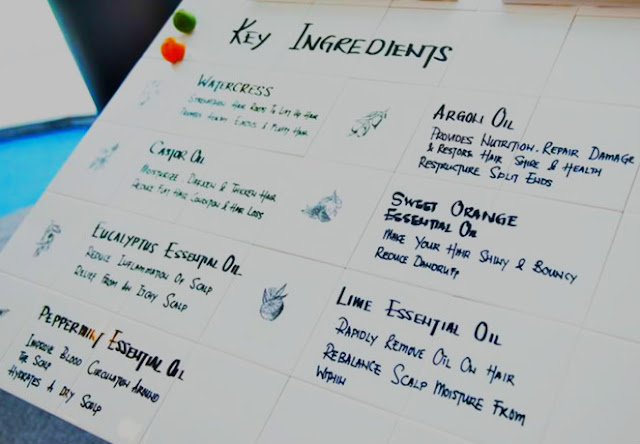 Key Ingredients
Watercress
Strengthen Hair Roots To Lift Up Hair
Promote Healthy Elastic & Fluffy Hair
Castor Oil
Moisturize, Darken & Thicken Hair
Reduce Flat Hair Condition & Hair Loss
Eucalyptus Essential Oil
Reduce Inflammation Of Scalp
Relief From An Itchy Scalp
Peppermint Essential Oil
Improve Blood Circulation Around
The Scalp
Hydrates A Dry Scalp
Argon Oil
Provides Nutrition. Repair Damage
& Restore Hair Shine & Health
Restructure Split Ends
Sweet Orange
Essential Oil
Make Your Hair Shiny & Bouncy
Reduce Dandruff
Lime Essential Oil
Rapidly Remove Oil On Hair
Rebalance Scalp Moisture From
Within